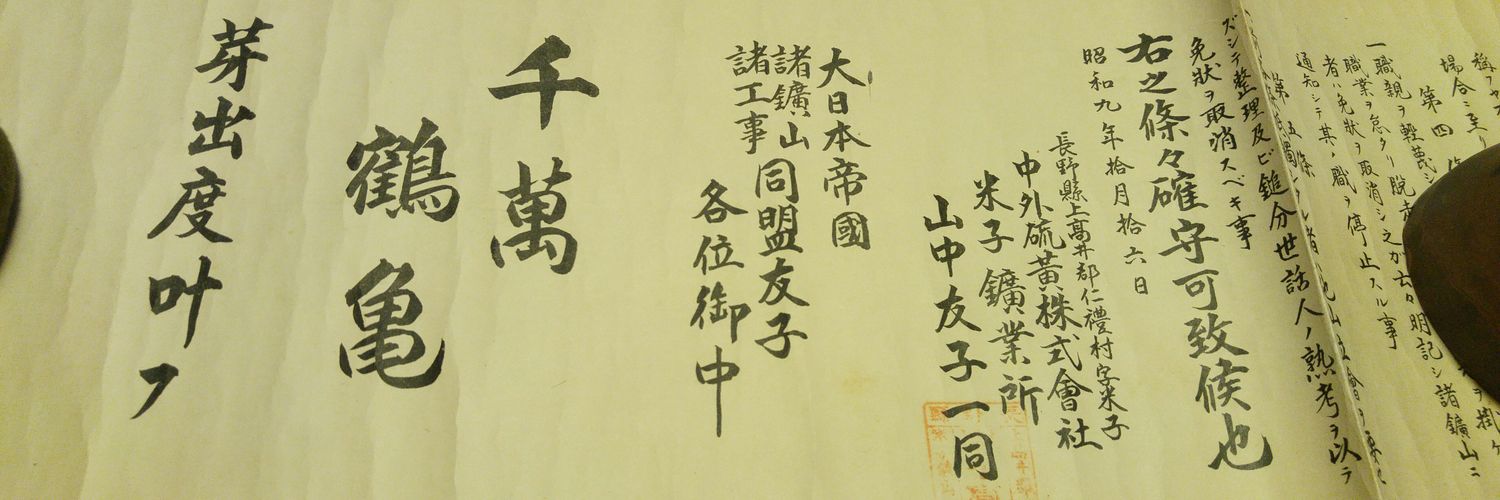 場合ニ至リ
第四
一職親ヲ輕蔑シ
職業ヲ怠タリ脱走
者ハ免狀ヲ取消シ之カ
明記シ諸鑛山ニ
通知シテ其ノ職ヲ停止スル事
第五條
ズシテ整理及ビ鎚分世話人ノ熟考ヲ以テ
免狀ヲ取消スベキ事
右之條々確守可致候也
昭和九年拾月拾六日
長野縣上高井郡仁禮村字米子
中外硫黄株式會社
米子鑛業所
山中友子一同
大日本帝國
諸鑛山
諸工事
同盟友子
各位御中
千萬
鶴亀
芽出度叶フ